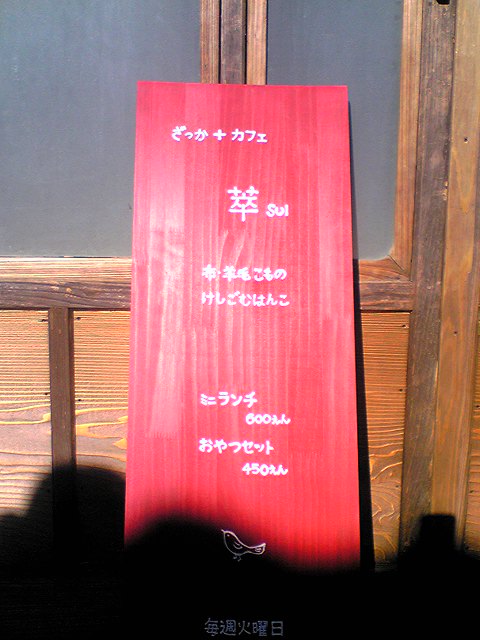 ざっか + カフェ
萃 Sui
布・羊毛こもの
けしごむはんこ
ミニランチ
600えん
おやつセット
450えん
毎週火曜日